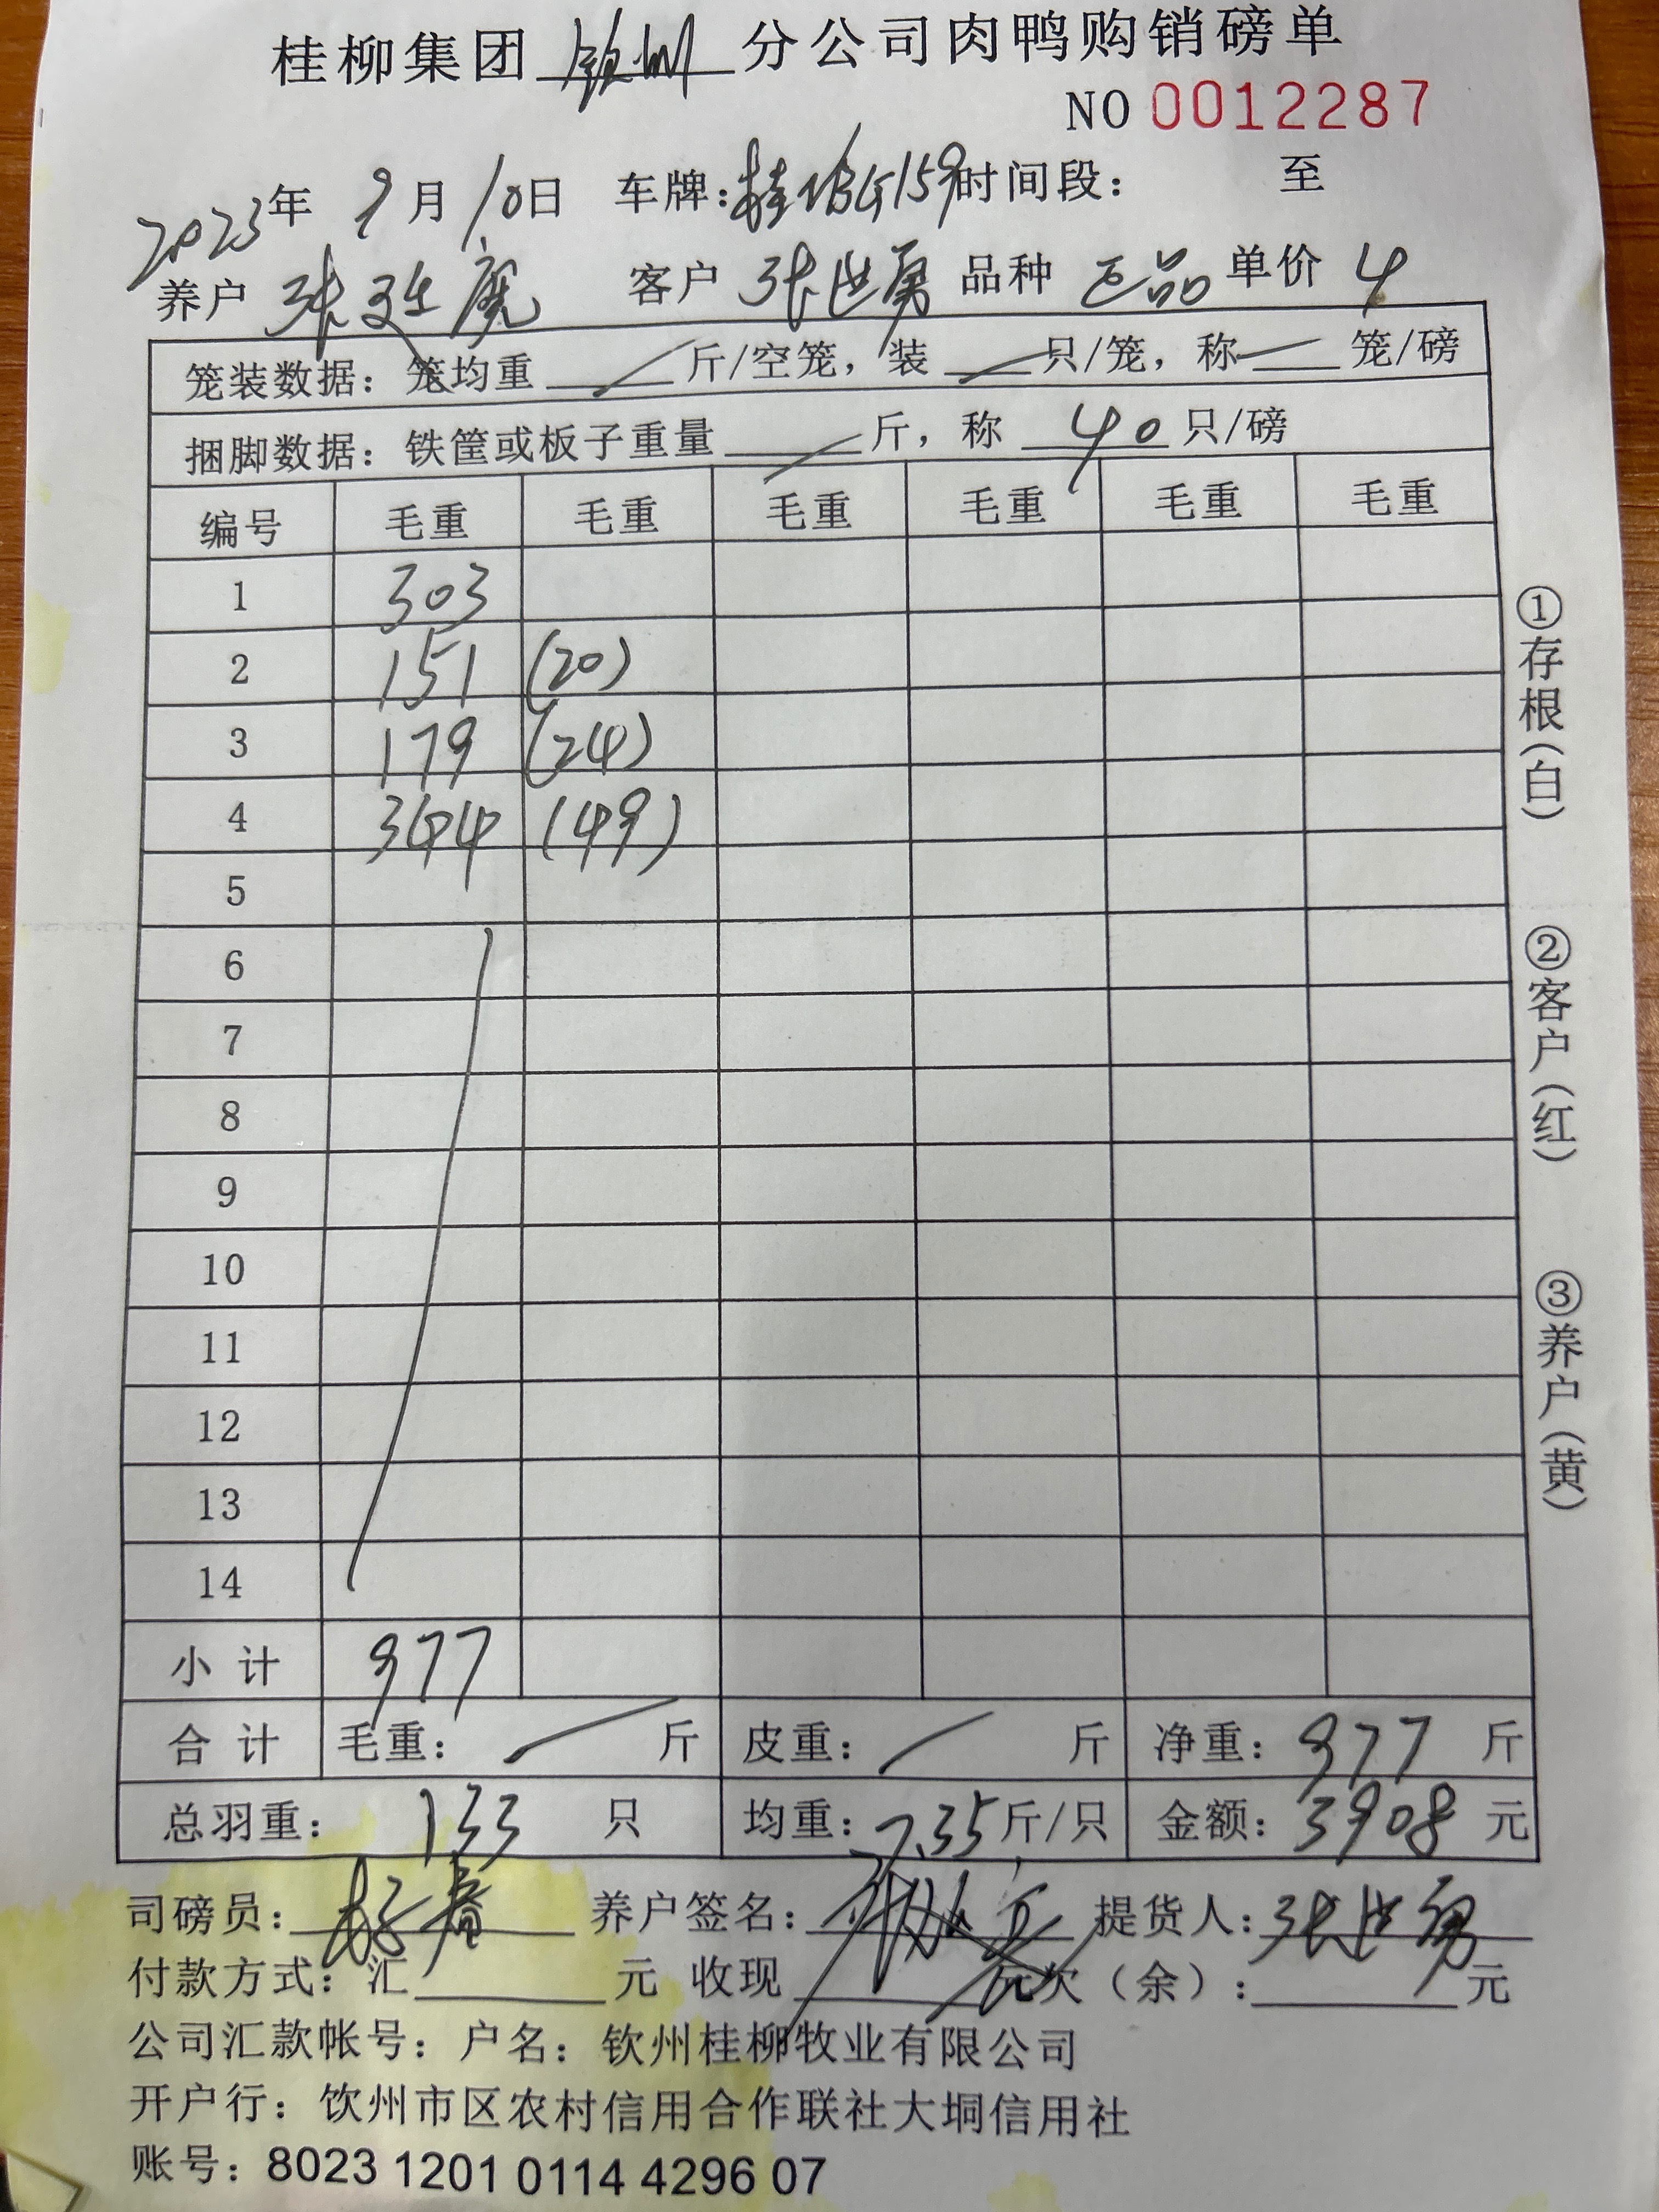 桂柳集团 钦州 分公司肉鸭购销磅单
NO 0012287
2023年 9月 10日 车牌:桂 159 时间段: 至
养户 张 客户 张世勇 品种 正品 单价 4
笼装数据: 笼均重 斤/空笼, 装 只/笼, 称 笼/磅
捆脚数据: 铁筐或板子重量 斤, 称 40 只/磅
编号 毛重 毛重 毛重 毛重 毛重 毛重
1 303
2 151 (20)
3 179 (24)
4 344 (49)
5
6
7
8
9
10
11
12
13
14
小 计 977
合 计 毛重: 斤 皮重: 斤 净重: 977 斤
总羽重: 133 只 均重: 7.35斤/只 金额: 3908 元
司磅员: 养户签名: 提货人: 张世勇
付款方式: 汇 元 收现 元欠(余): 元
公司汇款帐号: 户名: 钦州桂柳牧业有限公司
开户行: 饮州市区农村信用合作联社大垌信用社
账号: 8023 1201 0114 4296 07
①存根(白)
②客户(红)
③养户(黄)